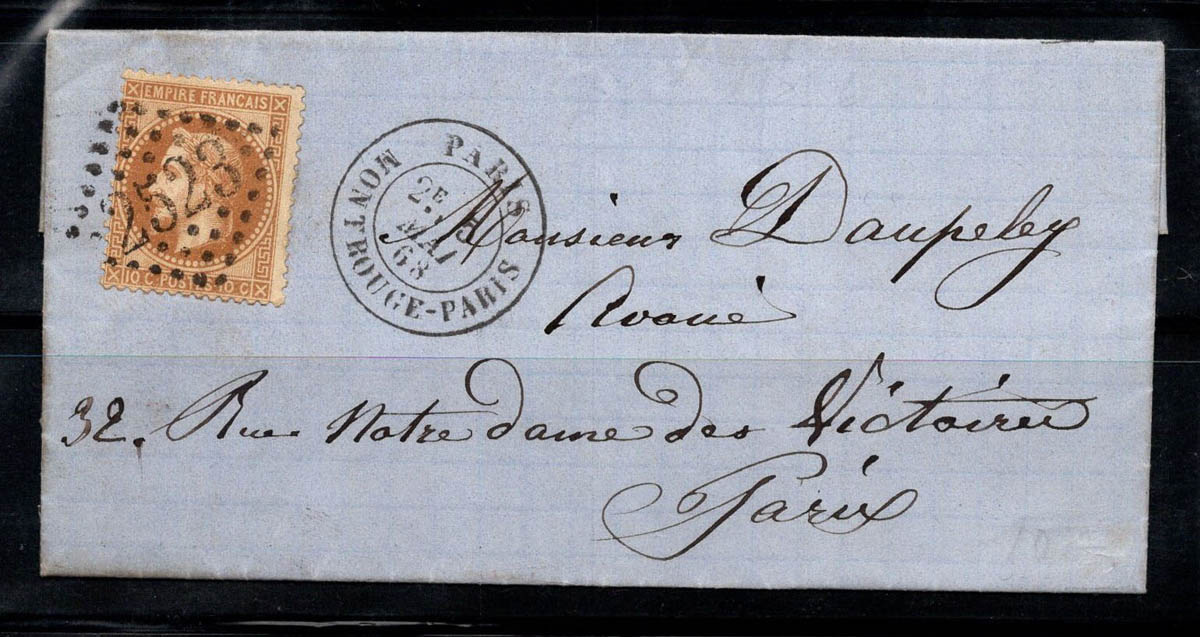 EMPIRE FRANCAIS
2523
10 C. POSTES 10 C.
PARIS
MONTROUGE-PARIS
2E
MAI
68
Monsieur Daupeley
Avoué
32. Rue Notre dame des Victoires
Paris